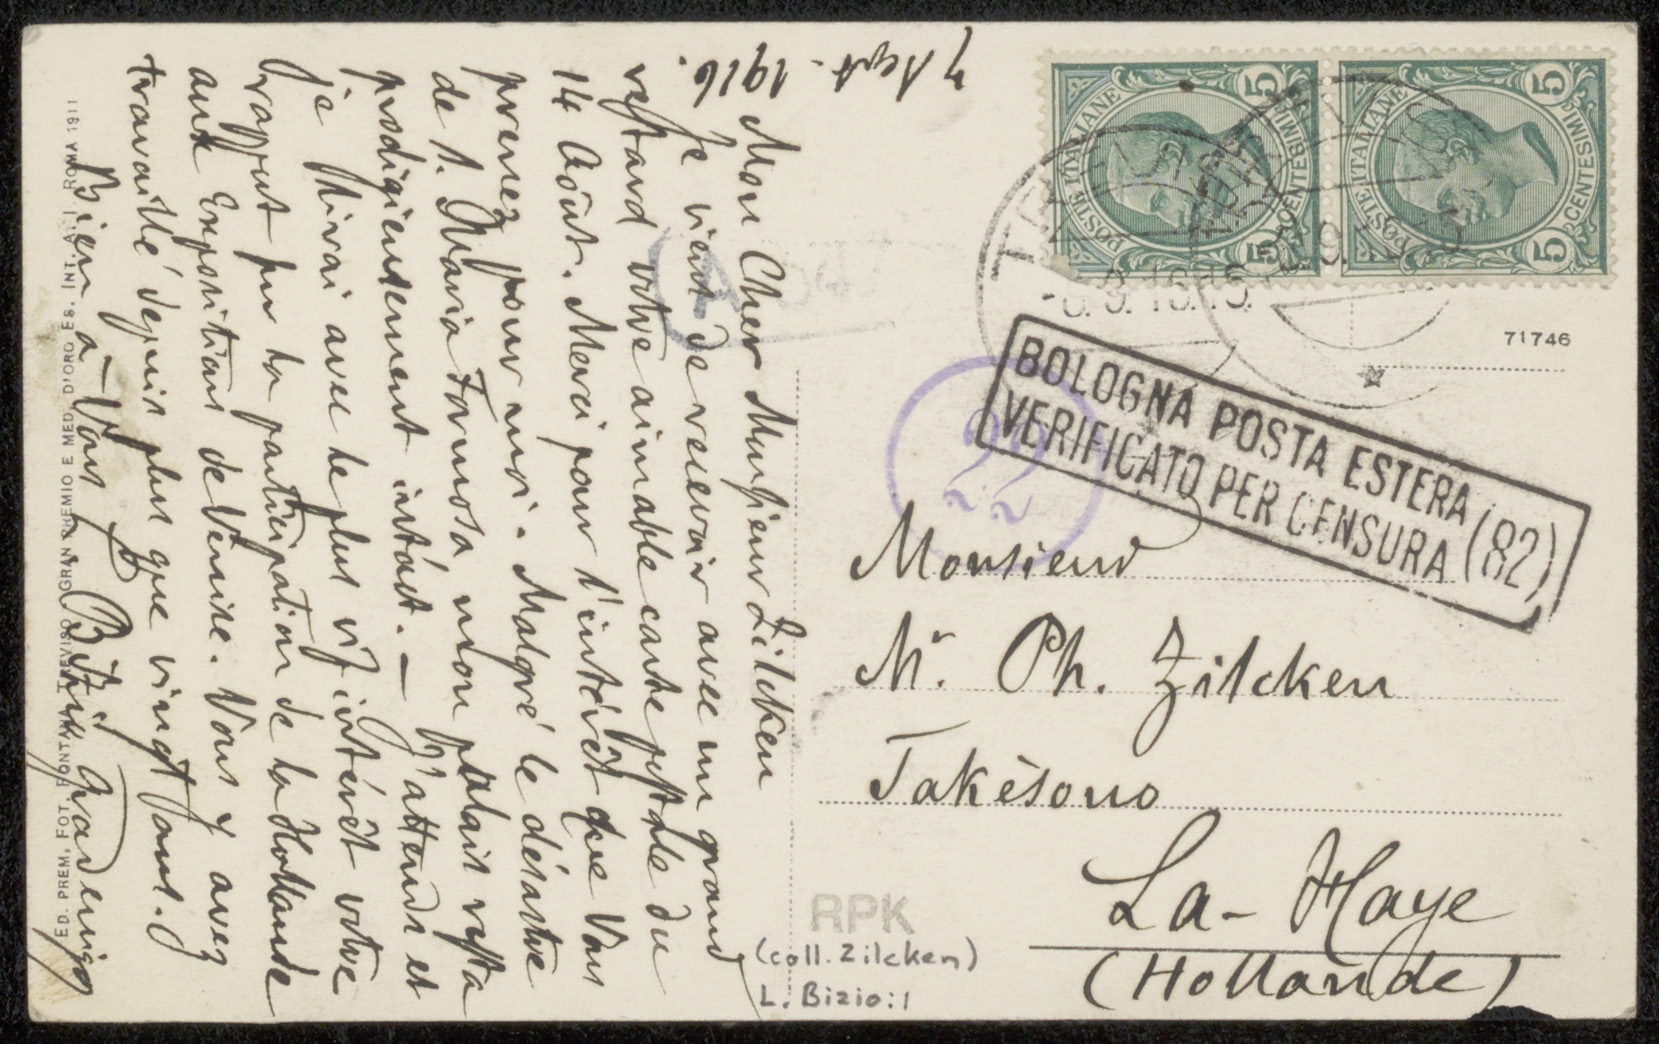 7 Sept. 1916.
Mon Cher Monsieur Zilcken
Je vient de recevoir avec un grand
restard votre aimable carte postale du
14 Aôut. Merci pour l'intérêt que Vous
prenez pour moi. Malgré le désastre
de S. Maria Formosa mon palais resta
prodigieusement intáct. — J'attends et
je lirai avec le plus vif intérêt votre
rapport sur la participation de la Hollande
aux Expositions de Venise. Vous y avez
travaillé depuis plus que vingt ans.
Bien à Vous
L. Bizio Gradenigo
ED. PREM. FOT. FONTANA TREVISO GRAN PREMIO E MED. D'ORO ES. INT. A. I. ROMA 1911
POSTE ITALIANE
5 CENTESIMI 5
POSTE ITALIANE
5 CENTESIMI 5
-8.9.16.15.
71746
BOLOGNA POSTA ESTERA
VERIFICATO PER CENSURA (82)
22
Monsieur
Mr. Ph. Zilcken
Takésono
La-Haye
(Hollande)
RPK
(coll. Zilcken)
L. Bizio: 1